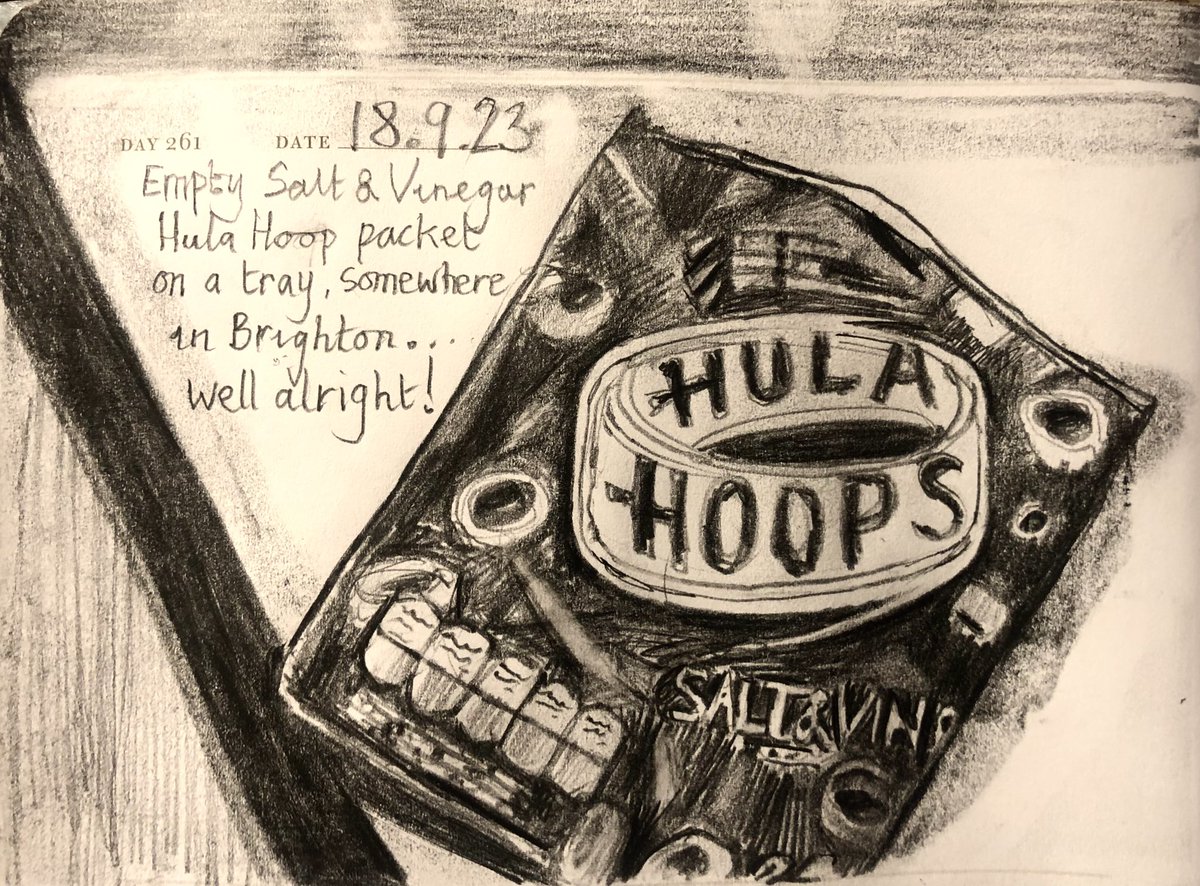 DAY 261 DATE 18.9.23
Empty Salt & Vinegar
Hula Hoop packet
on a tray, somewhere
in Brighton...
well alright!
HULA
HOOPS
SALT & VIN